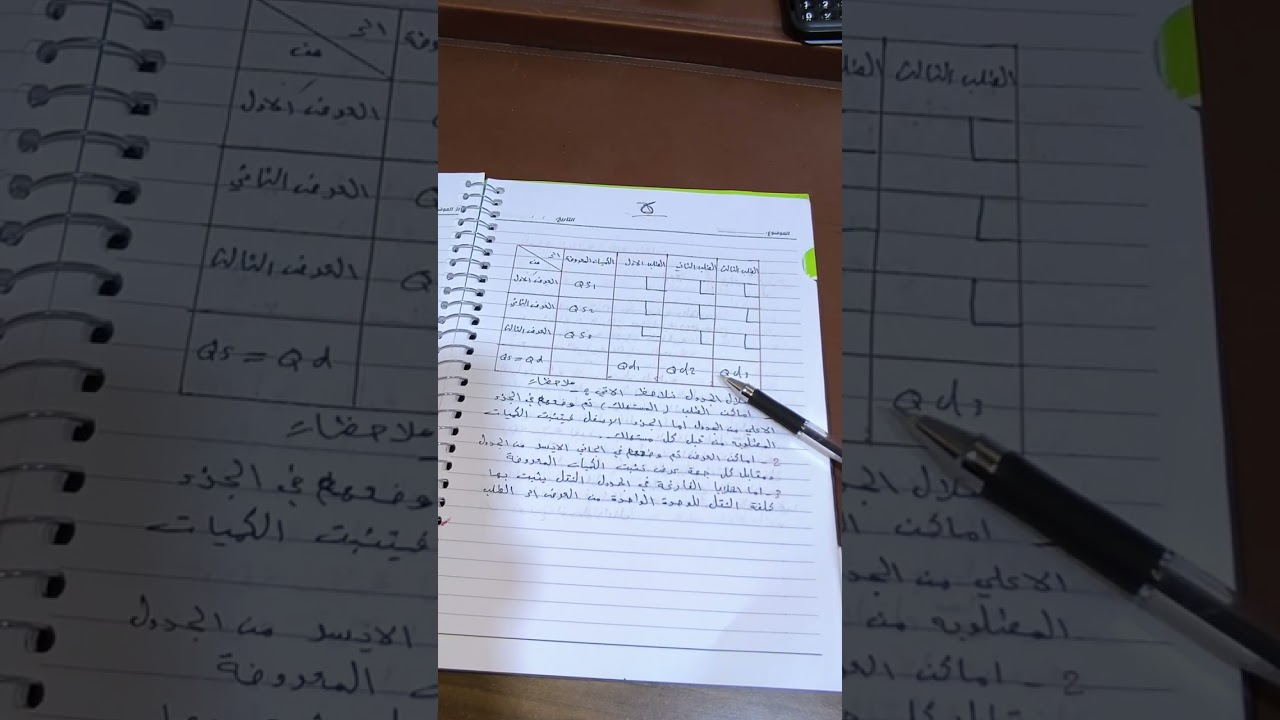 الموضوع:
التاريخ:
الى
من
الكميات المعروضة
الطلب الاول
الطلب الثاني
الطلب الثالث
العرض الاول
QS1
العرض الثاني
QS2
العرض الثالث
QS3
Qs = Qd
Qd1
Qd2
Qd3
خلال الجدول نلاحظ الاتي :- ملاحظات
اماكن الطلب ( المستهلك ) تم وضعهم في الجزء
الاعلى من الجدول اما الجزء الاسفل فيتثبت الكميات
المطلوبه من قبل كل مستهلك .
2 - اماكن العرض تم وضعهم في الجانب الايسر من الجدول
ومقابل كل جهة عرض تثبت الكميات المعروضة
3 - اما الخلايا الفارغة في الجدول النقل يثبت بها
كلفة النقل للوحدة الواحدة من العرض الى الطلب